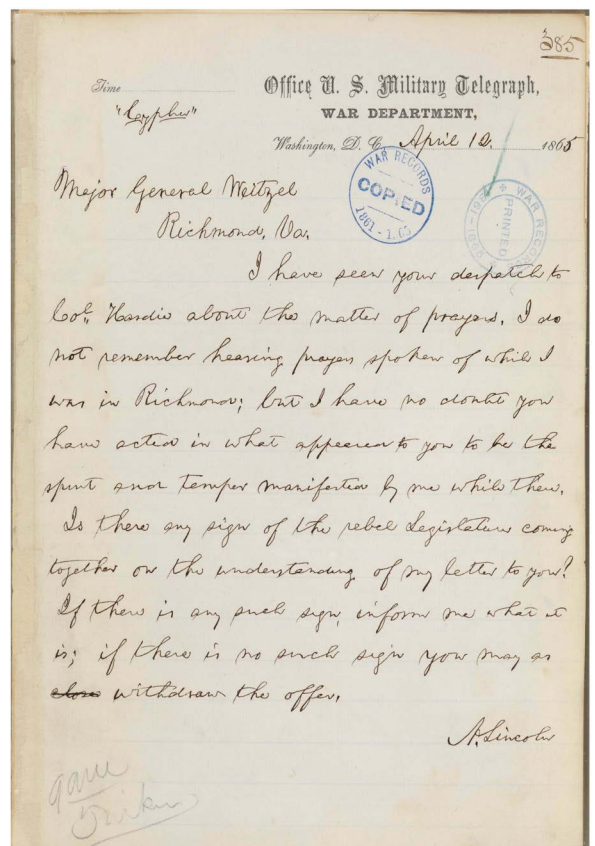 385
Time
"Cypher"
Office U. S. Military Telegraph,
WAR DEPARTMENT,
Washington, D. C., April 12. 1865
WAR RECORDS
COPIED
1861-1865
WAR RECORDS
PRINTED
Major General Weitzel
Richmond, Va.
I have seen your despatch to
Col. Hardie about the matter of prayers. I do
not remember hearing prayers spoken of while I
was in Richmond; but I have no doubt you
have acted in what appeared to you to be the
spirit and temper manifested by me while there.
Is there any sign of the rebel Legislature coming
together on the understanding of my letter to you?
If there is any such sign, inform me what it
is; if there is no such sign you may as
withdraw the offer.
A. Lincoln
9 am